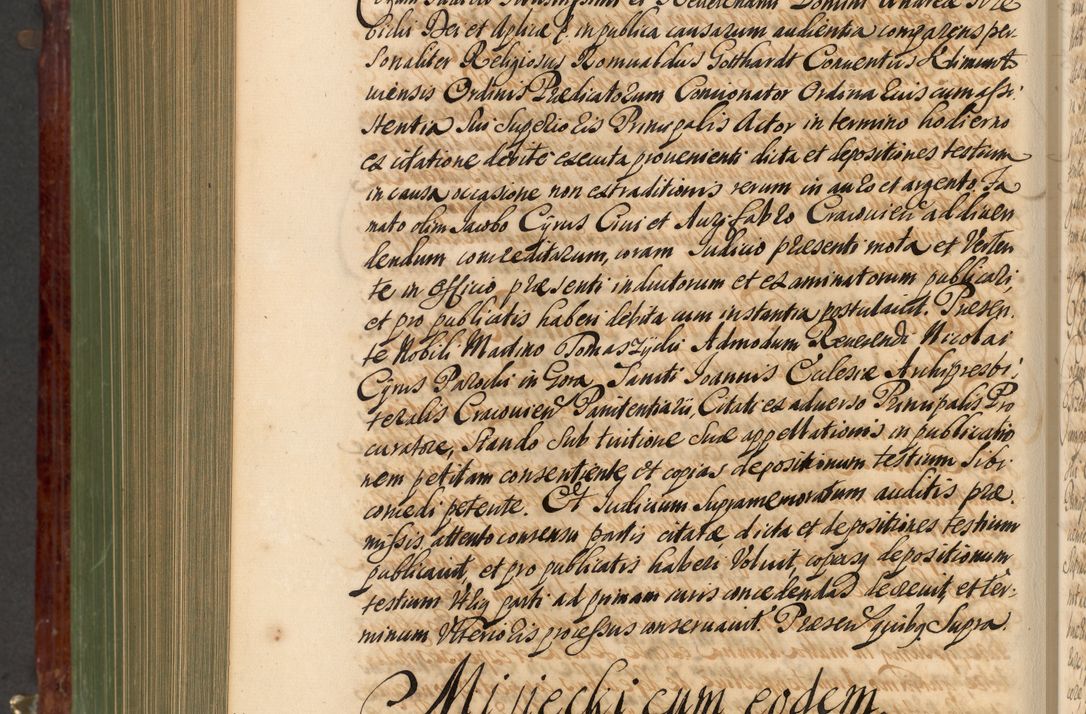 Coram Judicio Illustrissimi et Reverendissimi Domini Andreæ Dei
bilis Dei et Aplicæ &. in publica causarum audientia comparens per
sonaliter Religiosus Romualdus Gotthardt Conventus Klimunt
uiensis Ordinis Prædicatorum Concionator Ordinarius cum assi:
stentia sui Superioris Principalis Actor in termino hodierno
ex citatione debite executa provenienti dicta et depositiones testium
in causa occasione non extraditionis rerum in auro et argento, Fa
mato olim Jacobo Cyrus Civi et Aurifabro Cracouien ad diuen
dendum concreditarum, coram Judicio præsenti mota et Verten
te in officio præsenti inductorum et examinatorum publicari,
et pro publicatis haberi debita cum instantia postulauit. Præsen:
te Nobili Martino Tomaszycki Admodum Reuerendi Nicolai
Cyrus Parochi in Gora Sancti Joannis Eclesiæ Archipresbi:
teralis Cracouien Pænitentiarii, Citati ex aduerso Principalis Pro
curatore, Stando sub tuitione suæ appellationis in publicatio
nem petitam consentiente, et copias depositionum testium sibi
concedi petente. Et Judicium supramemoratum auditis præ
missis, attento consensu partis citatæ, dicta et depositiones testium
publicauit, et pro publicatis haberi Voluit, copiasq depositionum
testium Utriq parti ad primam iuris concedendas decreuit, et ter-
minum Ulterioris processus conseruauit. Præsen quibq. Supra
Misiecki cum eodem